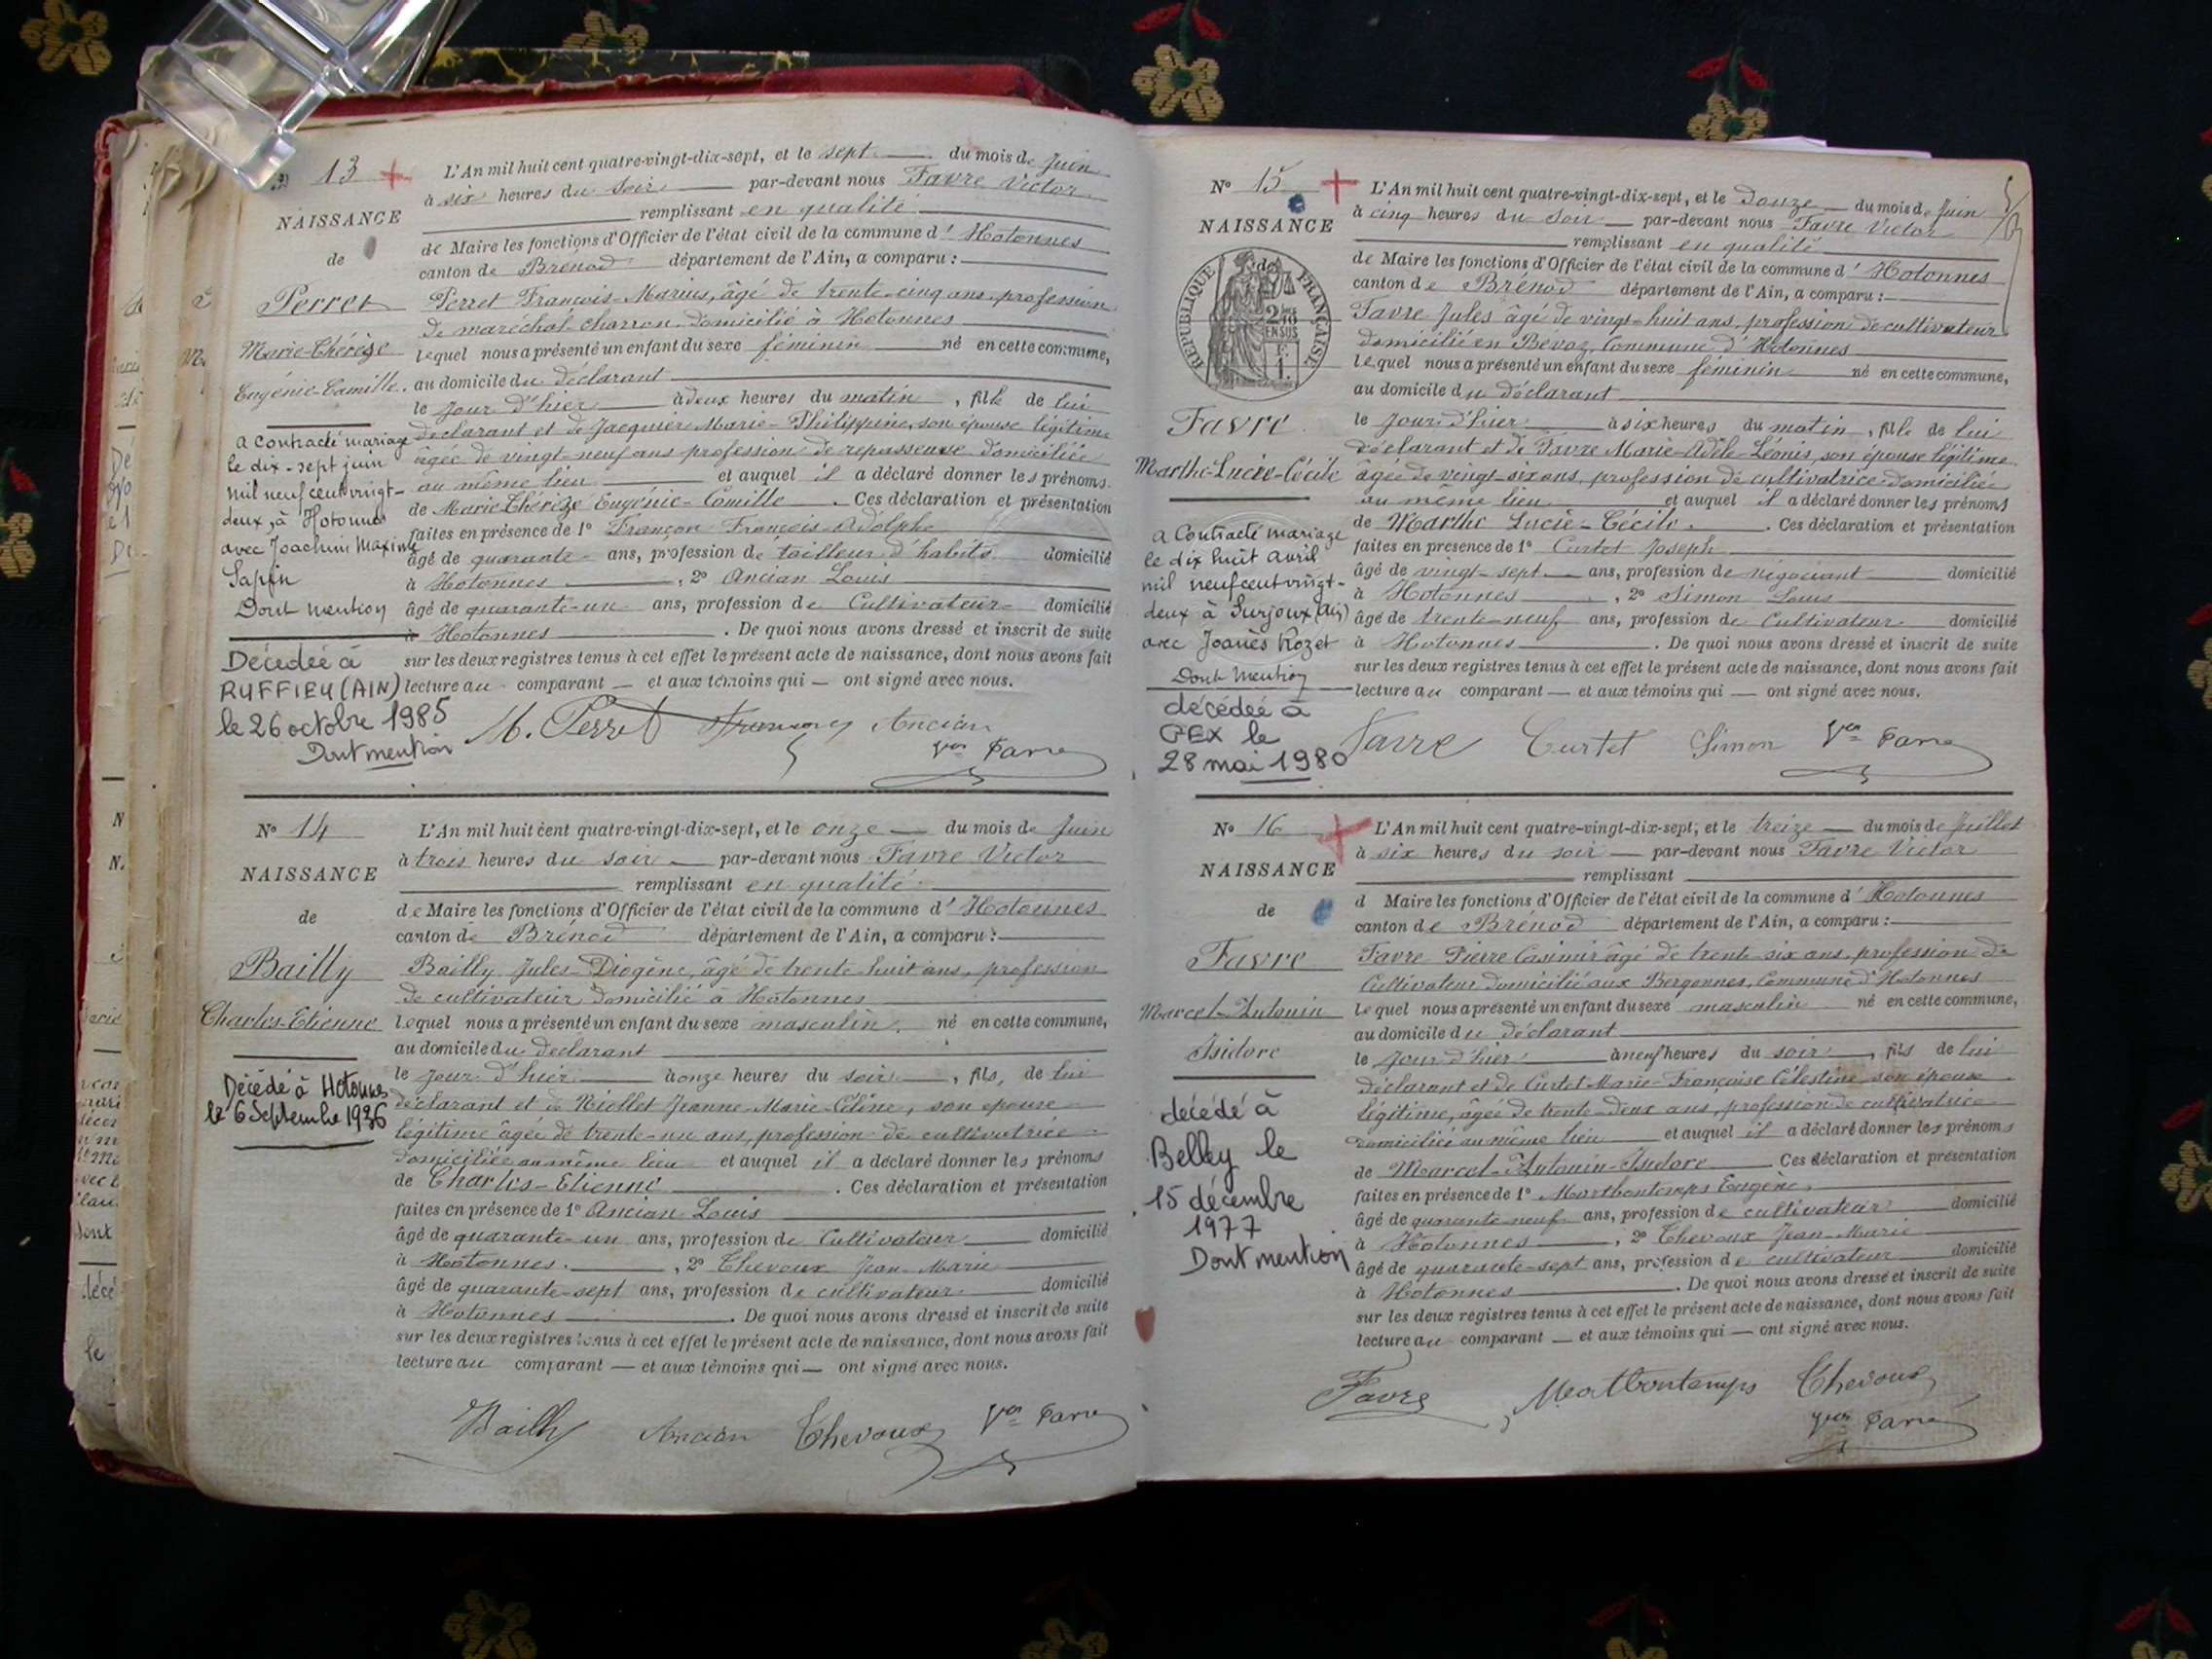 N° 13
NAISSANCE
de
Perret
Marie-Thérèze
Eugénie-Camille.
a contracté mariage
le dix-sept juin
mil neuf cent vingt-
deux, à Hotonnes
avec Joachim Maxime
Sapin
Dont mention
Décédée à
RUFFIEU (AIN)
le 26 octobre 1985
Dont mention
L'An mil huit cent quatre-vingt-dix-sept, et le sept du mois de Juin
à six heures du soir par-devant nous Favre Victor
remplissant en qualité
de Maire les fonctions d'Officier de l'état civil de la commune d' Hotonnes
canton de Brénod département de l'Ain, a comparu :
Perret François-Marius, âgé de trente-cinq ans, profession
de maréchal-charron, domicilié à Hotonnes
lequel nous a présenté un enfant du sexe féminin né en cette commune,
au domicile du déclarant
le jour d'hier à deux heures du matin, fille de lui
déclarant et de Jacquier Marie-Philippine, son épouse légitime
âgée de vingt-neuf ans profession de repasseuse domiciliée
au même lieu et auquel il a déclaré donner les prénoms
de Marie Thérèze Eugénie-Camille. Ces déclaration et présentation
faites en présence de 1° Françon François Adolphe
âgé de quarante ans, profession de tailleur d'habits domicilié
à Hotonnes, 2° Ancian Louis
âgé de quarante-un ans, profession de Cultivateur domicilié
à Hotonnes. De quoi nous avons dressé et inscrit de suite
sur les deux registres tenus à cet effet le présent acte de naissance, dont nous avons fait
lecture au comparant — et aux témoins qui — ont signé avec nous.
M. Perret Françon Ancian
Vor Favre
N° 14
NAISSANCE
de
Bailly
Charles-Etienne
Décédé à Hotonnes
le 6 Septembre 1936
L'An mil huit cent quatre-vingt-dix-sept, et le onze du mois de Juin
à trois heures du soir par-devant nous Favre Victor
remplissant en qualité
de Maire les fonctions d'Officier de l'état civil de la commune d' Hotonnes
canton de Brénod département de l'Ain, a comparu :
Bailly Jules-Diogène, âgé de trente huit ans, profession
de cultivateur domicilié à Hotonnes
lequel nous a présenté un enfant du sexe masculin, né en cette commune,
au domicile du déclarant
le jour d'hier à onze heures du soir, fils, de lui
déclarant et de Niollet Jeanne-Marie-Céline, son épouse
légitime âgée de trente-un ans, profession de cultivatrice
domiciliée au même lieu et auquel il a déclaré donner les prénoms
de Charles-Etienne. Ces déclaration et présentation
faites en présence de 1° Ancian Louis
âgé de quarante-un ans, profession de Cultivateur domicilié
à Hotonnes., 2° Chevoux Jean-Marie
âgé de quarante-sept ans, profession de cultivateur domicilié
à Hotonnes. De quoi nous avons dressé et inscrit de suite
sur les deux registres tenus à cet effet le présent acte de naissance, dont nous avons fait
lecture au comparant — et aux témoins qui — ont signé avec nous.
Bailly Ancian Chevoux Vor Favre
N° 15
NAISSANCE
de
REPUBLIQUE FRANÇAISE
Favre
Marthe-Lucie-Cécile
a contracté mariage
le dix huit avril
mil neuf cent vingt-
deux à Surjoux (Ain)
avec Joanès Rozet
Dont mention
décédée à
GEX le
28 mai 1980
L'An mil huit cent quatre-vingt-dix-sept, et le Douze du mois de Juin
à cinq heures du soir par-devant nous Favre Victor
remplissant en qualité
de Maire les fonctions d'Officier de l'état civil de la commune d' Hotonnes
canton de Brénod département de l'Ain, a comparu :
Favre Jules âgé de vingt-huit ans, profession de cultivateur
domicilié en Bevoz, Commune d'Hotonnes
lequel nous a présenté un enfant du sexe féminin né en cette commune,
au domicile du déclarant
le jour d'hier à six heures du matin, fille de lui
déclarant et de Favre Marie-Adèle-Léonis, son épouse légitime
âgée de vingt-six ans, profession de cultivatrice domiciliée
au même lieu et auquel il a déclaré donner les prénoms
de Marthe Lucie-Cécile. Ces déclaration et présentation
faites en présence de 1° Curtet Joseph
âgé de vingt-sept ans, profession de négociant domicilié
à Hotonnes, 2° Simon Louis
âgé de trente-neuf ans, profession de Cultivateur domicilié
à Hotonnes. De quoi nous avons dressé et inscrit de suite
sur les deux registres tenus à cet effet le présent acte de naissance, dont nous avons fait
lecture au comparant — et aux témoins qui — ont signé avec nous.
Favre Curtet Simon Vor Favre
N° 16
NAISSANCE
de
Favre
Marcel-Antonin
Isidore
décédé à
Belley le
15 décembre
1977
Dont mention
L'An mil huit cent quatre-vingt-dix-sept, et le treize du mois de Juillet
à six heures du soir par-devant nous Favre Victor
remplissant
d Maire les fonctions d'Officier de l'état civil de la commune d' Hotonnes
canton de Brénod département de l'Ain, a comparu :
Favre Pierre Casimir âgé de trente six ans, profession de
Cultivateur domicilié aux Bergonnes, Commune d'Hotonnes
lequel nous a présenté un enfant du sexe masculin né en cette commune,
au domicile du déclarant
le jour d'hier à neuf heures du soir, fils de lui
déclarant et de Curtet Marie-Françoise Célestine son épouse
légitime, âgée de trente-deux ans, profession de cultivatrice
domiciliée au même lieu et auquel il a déclaré donner les prénoms
de Marcel-Antonin-Isidore Ces déclaration et présentation
faites en présence de 1° Montbontemps Eugène,
âgé de quarante neuf ans, profession de cultivateur domicilié
à Hotonnes, 2° Chevoux Jean-Marie
âgé de quarante-sept ans, profession de cultivateur domicilié
à Hotonnes. De quoi nous avons dressé et inscrit de suite
sur les deux registres tenus à cet effet le présent acte de naissance, dont nous avons fait
lecture au comparant — et aux témoins qui — ont signé avec nous.
Favre Montbontemps Chevoux
Vor Favre